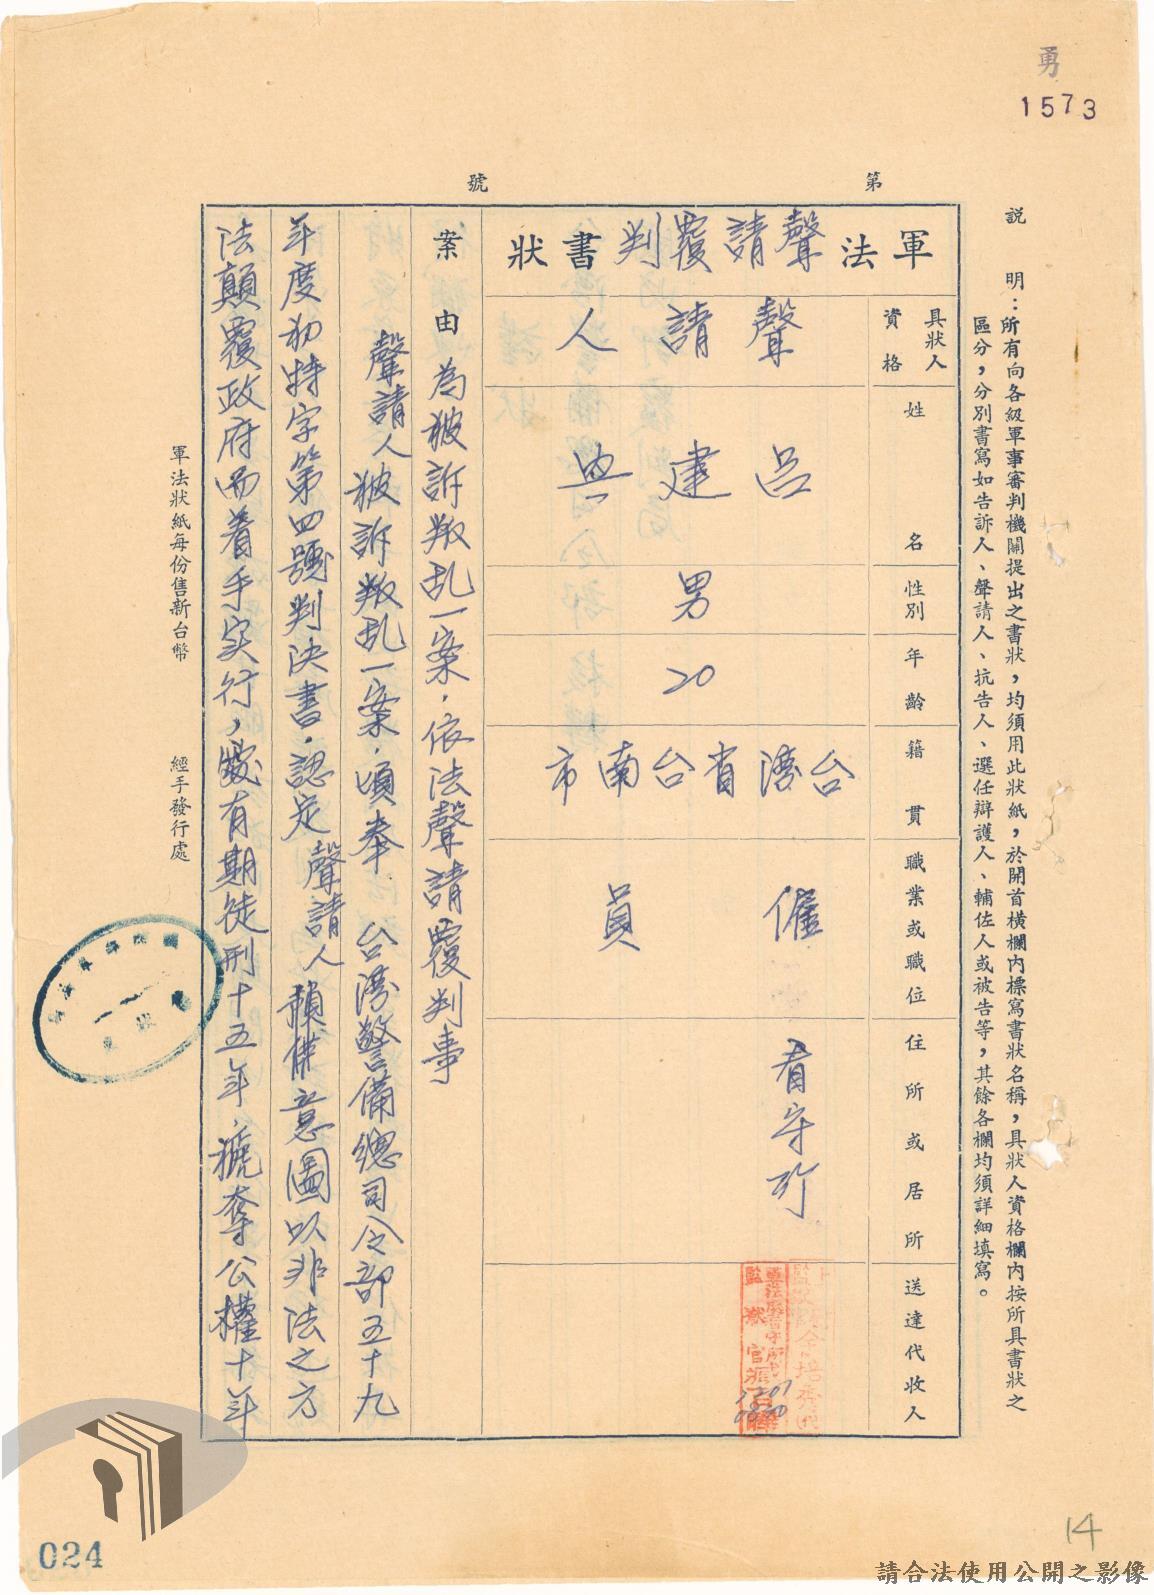 勇
1573
第 號
說 明：所有向各級軍事審判機關提出之書狀，均須用此狀紙，於開首橫欄內標寫書狀名稱，具狀人資格欄內按所具書狀之
區分，分別書寫如告訴人、聲請人、抗告人、選任辯護人、輔佐人或被告等，其餘各欄均須詳細填寫。
軍法聲請覆判書狀
具狀人資格
聲請人
姓名
呂建興
性別
男
年齡
20
籍貫
台湾省台南市
職業或職位
僱員
住所或居所
看守所
送達代收人
案由 為被訴叛乱一案，依法聲請覆判事
聲請人被訴叛乱一案，頃奉 台湾警備總司令部五十九
年度初特字第四號判決書，認定 聲請人預備意圖以非法之方
法顛覆政府而着手实行，處有期徒刑十五年，褫奪公權十年
軍法狀紙每份售新台幣 經手發行處
024
14
請合法使用公開之影像